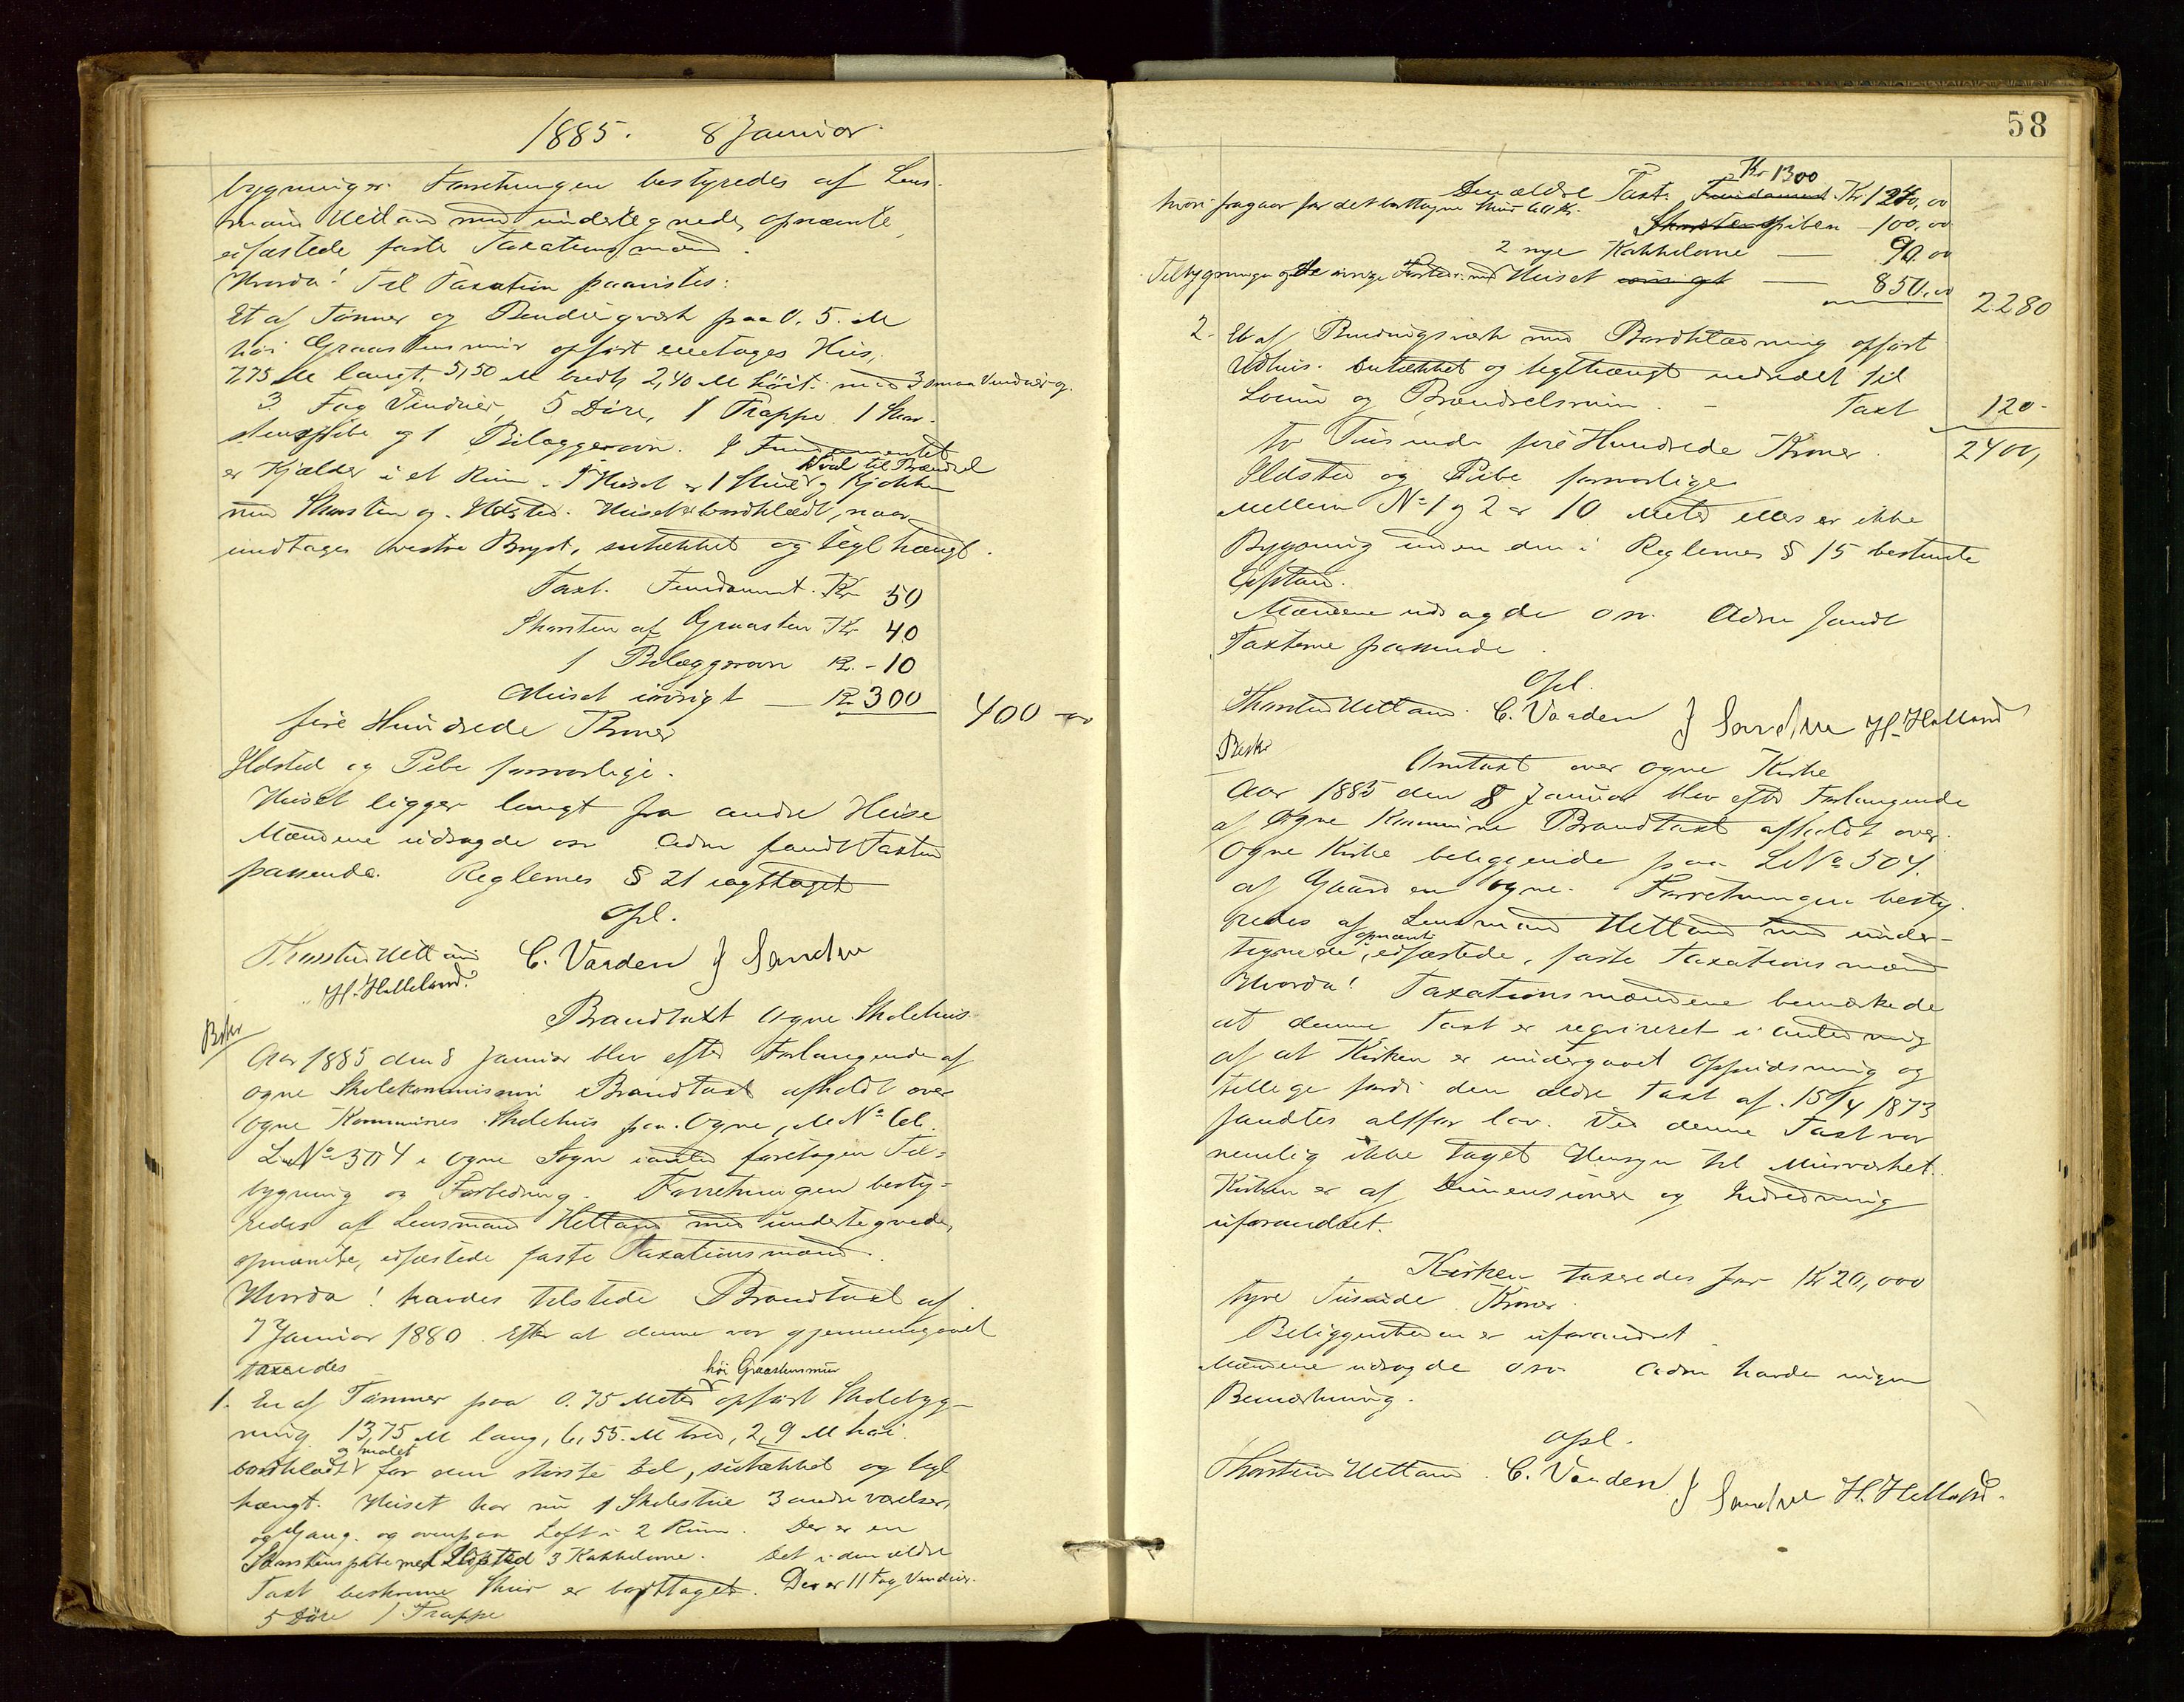 1885. 8 Januar.
bygninger. Forretningen bestyredes af Lens-
mand Hetland med undertegnede, opnævnte,
eifæstede faste Taxationsmænd.
Hvorda! Til Taxation paavistes:
Et af Tømmer og Bindingværk paa 0.5. M
høi Graastensmur opført eenetages Hus,
7,75 M langt, 5,50 M bredt, 2,40 M høit. med 3 smaa Vinduer og
3 Fag Vinduer, 5 Døre, 1 Trappe 1 Skor-
stenspibe og 1 Bilæggerovn. I Fundamentet
er Kjælder i et Rum. I Huset er 1 Stue, Kjøkken
Sval til Brændsel
med Skorsten og Ildsted. Huset er bordklædt, naar
undtages vestre Bryst, sutækket og tegl hængt.
Taxt. Fundament. Kr 50
Skorsten af Graasten Kr 40
1 Bilæggerovn Kr. - 10
Huset iøvrigt — Kr 300
400 -
fire Hundrede Kroner
Ildsted og Pibe forsvarlige.
Huset ligger langt fra andre Huse
Mændene udsagde osv Adm fandt Taxten
passende. Reglernes § 21 iagttaget
Opl.
Thorsten Hetland C. Varden J Sandve
H. Helleland.
Brandtaxt Ogne Skolehus.
Beskr
Aar 1885 den 8 Januar blev efter Forlangende af
Ogne Skolekommission Brandtaxt afholdt over
Ogne Kommunes Skolehus paa Ogne, M No 66.
L No 304 i Ogne Sogn i anled foretagen Til-
bygning og Forbedring. Forretningen besty-
redes af Lensmand Hetland med undertegnede,
opnævnte, eifæstede faste Taxationsmænd.
Hvorda! havdes tilstede Brandtaxt af
7 Januar 1880. Efter at denne var gjennemgaaet
taxeredes
høi Graastensmur
1. En af Tømmer paa 0.75 Meter opført Skolebyg-
ning 13,75 M lang, 6,55 M bred, 2,9 M høi.
og malet
bordklædt for den største Del, sutækket og tegl
hængt. Huset har nu 1 Skolestue 3 andre værelser,
og Gang. og ovenpaa Loft i 2 Rum. Der er en
Skorstenspibe med Ildsted 3 Kakkelovne. Det i den ældre
Taxt beskrevne Skur er borttaget. Der er 11 Fag Vinduer.
5 Døre 1 Trappe
58
Kr 1300
Den ældre Taxt. Fundament Kr 1240,00
hvori fragaar for det borttagne Skur 60 Kr.
Skorstenspiben - 100,00
2 nye Kakkelovne — 90.00
Tilbygningen og de øvrige Forbedr. ved Huset iøvrigt — 850,00
2280
2. Et af Bindingsværk med Bordklædning opført
Udhus. sutækket og teglhængt indredet til
Locum og Brændselsrum. - Taxt 120 -
to Tusinde fire Hundrede Kroner. 2400,
Ildsted og Pibe forsvarlige
Mellem No 1 og 2 er 10 Meter ellers er ikke
Bygning inden den i Reglernes § 15 bestemte
Afstand.
Mændene udsagde osv. Adm fandt
Taxterne passende.
Opl.
Thorsten Hetland. C. Varden J Sandve H. Helland
Beskr
Omtaxt over Ogne Kirke
Aar 1885 den 8 Januar blev efter Forlangende
af Ogne Kommune Brandtaxt afholdt over
Ogne Kirke beliggende paa L No 304.
af Gaarden Ogne. Forretningen besty-
redes af Lensmand Hetland med under-
opnævnte
tegnede, eifæstede, faste Taxationsmænd
Hvorda! Taxationsmændene bemærkede
at denne Taxt er reqvireret i anledning
af at Kirken er undergaaet Oppudsning og
tillige fordi den ældre Taxt af 15/4 1873
fandtes altfor lav. Ved denne Taxt var
nemlig ikke taget Hensyn til Murværket.
Kirken er af Dimensioner og Indredning
uforandret.
Kirken taxeredes for Kr 20,000
tyve Tusinde Kroner.
Beliggenheden er uforandret
Mændene udsagde osv Adm havde ingen
Bemærkning.
Opl.
Thorsten Hetland. C. Varden J Sandve H. Helland.